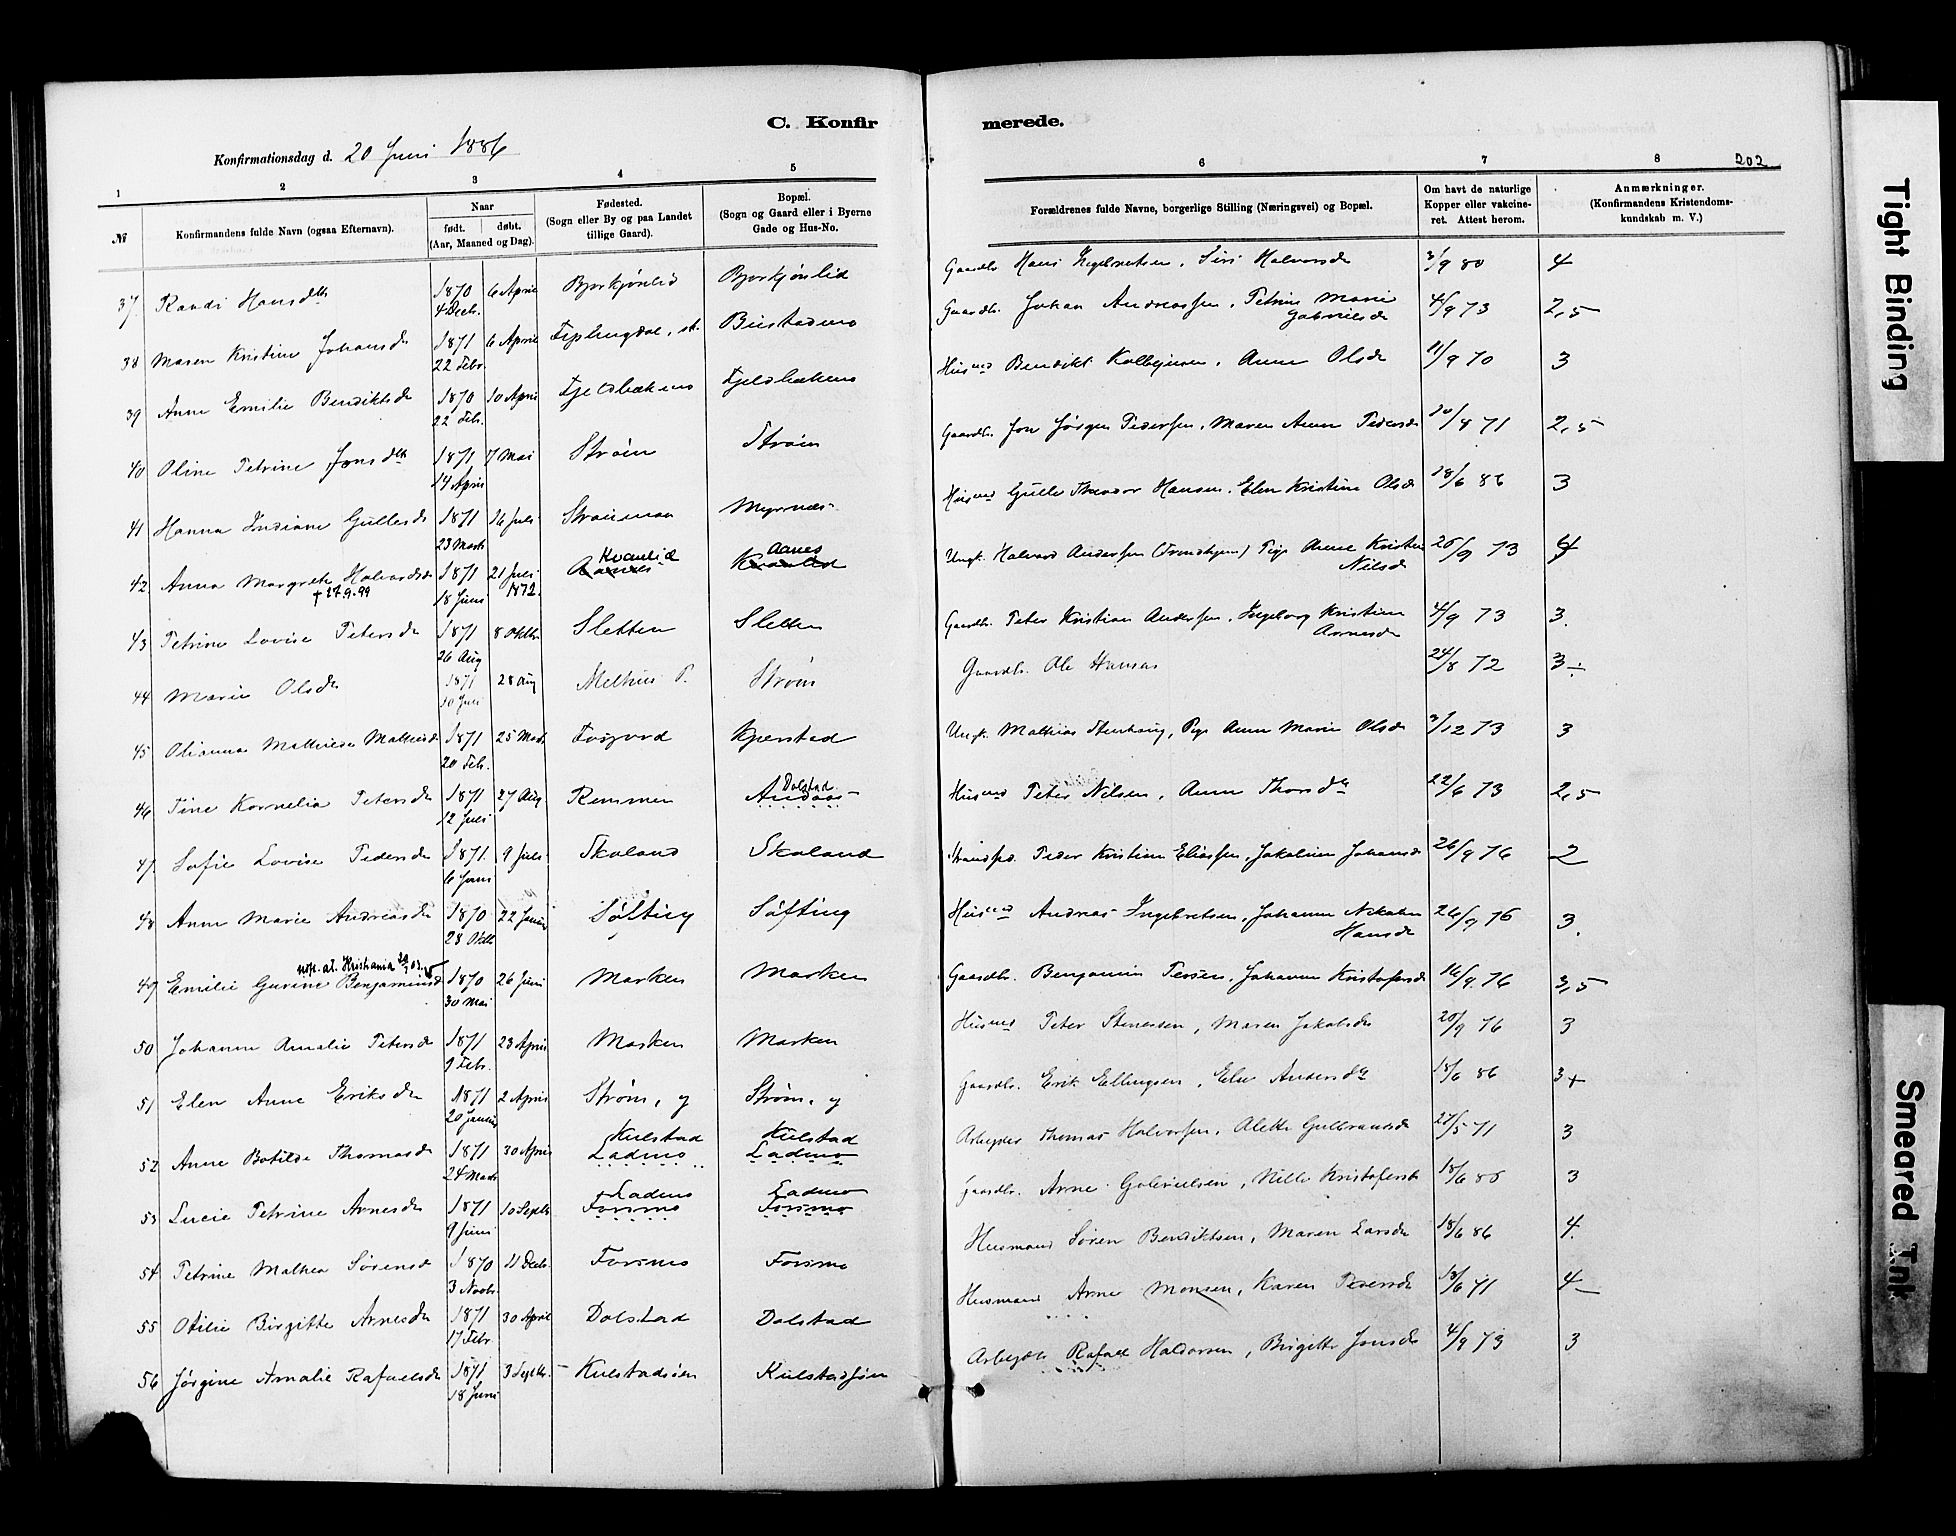 C. Konfirmerede.
Konfirmationsdag d. 20 Juni 1886
202
1 2 3 4 5 6 7 8
№ Konfirmandens fulde Navn (ogsaa Efternavn).
Naar født. døbt. (Aar, Maaned og Dag).
Fødested. (Sogn eller By og paa Landet tillige Gaard).
Bopæl. (Sogn og Gaard eller i Byerne Gade og Hus-No.
Forældrenes fulde Navne, borgerlige Stilling (Næringsvei) og Bopæl.
Om havt de naturlige Kopper eller vakcineret. Attest herom.
Anmærkninger. (Konfirmandens Kristendomskundskab m. V.)
37 Randi Hansdtr 1870 4 Decb. 6 April Bjørkjønlid Bjørkjønlid Gaardbr. Hans Ingebretsen, Siri Halvorsdr 3/9 80 4
38 Maren Kristine Johansdr 1871 22 Febr. 6 April Gaardbr. Johan Andreassen, Petrine Marie Gabrielsdr 4/9 73 2,5
39 Anne Emilie Bendiktsdr 1870 22 Feb. 10 April Fjeldbækmo Fjeldbækmo Husmd Bendikt Kolbeinsen, Anne Olsdr 11/9 70 3
40 Oline Petrine Jonsdtr 1871 14 April 7 Mai Strøm Strøm Gaardbr. Jon Jørgen Pedersen, Maren Anne Pedersdr 20/8 71 2,5
41 Hanna Indiane Gullesdr 1871 23 Marts 16 Juli Strømmoa Myrnæs Husmd Gulle Theodor Hansen, Elen Kristine Olsdr 18/6 86 3
42 Anna Margrete Halvordsdr 1871 18 Juni 21 Juli 1872. Kvanlid Aanes Ungk. Halvard Andersen (Trondhjem) Pige Anne Kristine Nilsdr 25/9 73 4
† 27.9.99
43 Petrine Lovise Petersdr 1871 26 Aug 8 Oktbr Sletten Sletten Gaardbr. Peter Kristian Andersen, Ingeborg Kristine Arnesdr 4/9 73 3.
44 Marie Olsdr 1871 10 Juli 28 Aug Melhus P. Strøm Gaardbr. Ole Hansen 24/8 72 3÷
45 Olianna Mathisdr 1871 20 Feb. 25 Marts Kjerstad Ungk. Mathias Stenhaug, Pige Anne Marie Olsdr 3/12 73 3
46 Tine Kornelia Petersdr 1871 12 Juli 27 Aug. Remmen Dolstad Andaas Husmd Peter Nilsen, Anne Thorsdtr 22/6 73 2,5
47 Sofie Lovise Pedersdr 1871. 6 Juni 9 Juli Skaland Skaland Strandsd. Peder Kristian Eliassen, Jakobine Johansdr 26/9 76 2
48 Anne Marie Andreasdr 1870 28 Oktb 22 Januar Søfting Søfting Husmd Andreas Ingebretsen, Johanne Nikoline Hansdr 26/9 76 3.
49 Emilie Gurine Benjaminsd 1870 30 Mai 26 Juni Marken Marken Gaardbr. Benjamin Persen, Johanne Kristofersdr 16/9. 76 3,5
50 Johanne Amalie Petersdr 1871 9 Febr. 23 April Marken Marken Husmd Peter Stenersen, Maren Jakobsdr 20/9 76 3
51 Elen Anne Eriksdr 1871 20 Januar 2 April Strøm, y Strøm, y Gaardbr. Erik Ellingsen, Elen Andersdtr 18/6 86 3+
52 Anne Botilde Thomasdr 1871 24 Marts 30 April Kulstad Ladmo Kulstad Ladmo Arbeyder Thomas Halvorsen, Alette Gulbrandsdr 27/5 71 3
53 Lucie Petrine Arnesdr 1871 9 Juni 10 Septb. Ladmo Forsmo Ladmo Forsmo Gaardbr. Arne Gabrielsen, Nille Kristofersdr 18/6 86 3
54 Petrine Mathea Sørensd 1870 3 Novb. 11 Decb. Forsmo Forsmo Husmand Søren Bendiktsen, Maren Larsdr 18/6 86 4.
55 Otilie Birgitte Arnesdr 1871 17 Febr. 30 April Dolstad Dolstad Husmand Arne Monsen, Karen Pedersdr 13/6 71 4–
56 Jørgine Amalie Rafaelsdr 1871 18 Juni 3 Septbr. Kulstadsøen Kulstadsjøn Arbeyder Rafael Haldorsen, Birgitte Jonsdr 4/9 73 3
Tight Binding
Smeared Ink